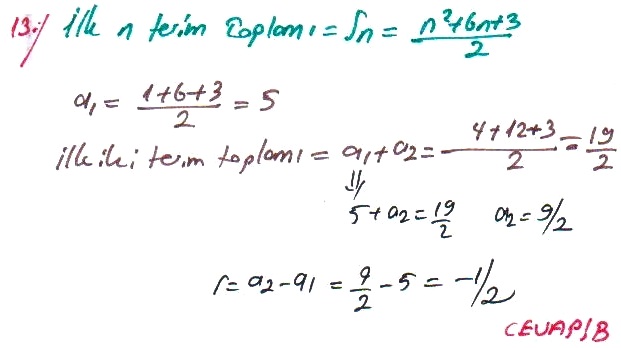 13-) ilk n terim toplamı = Sn = n²+6n+3 / 2
a₁ = 1+6+3 / 2 = 5
ilk iki terim toplamı = a₁+a₂ = 4+12+3 / 2 = 19/2
⇓
5+a₂ = 19/2 a₂ = 9/2
r = a₂-a₁ = 9/2 - 5 = -1/2
CEVAP/B